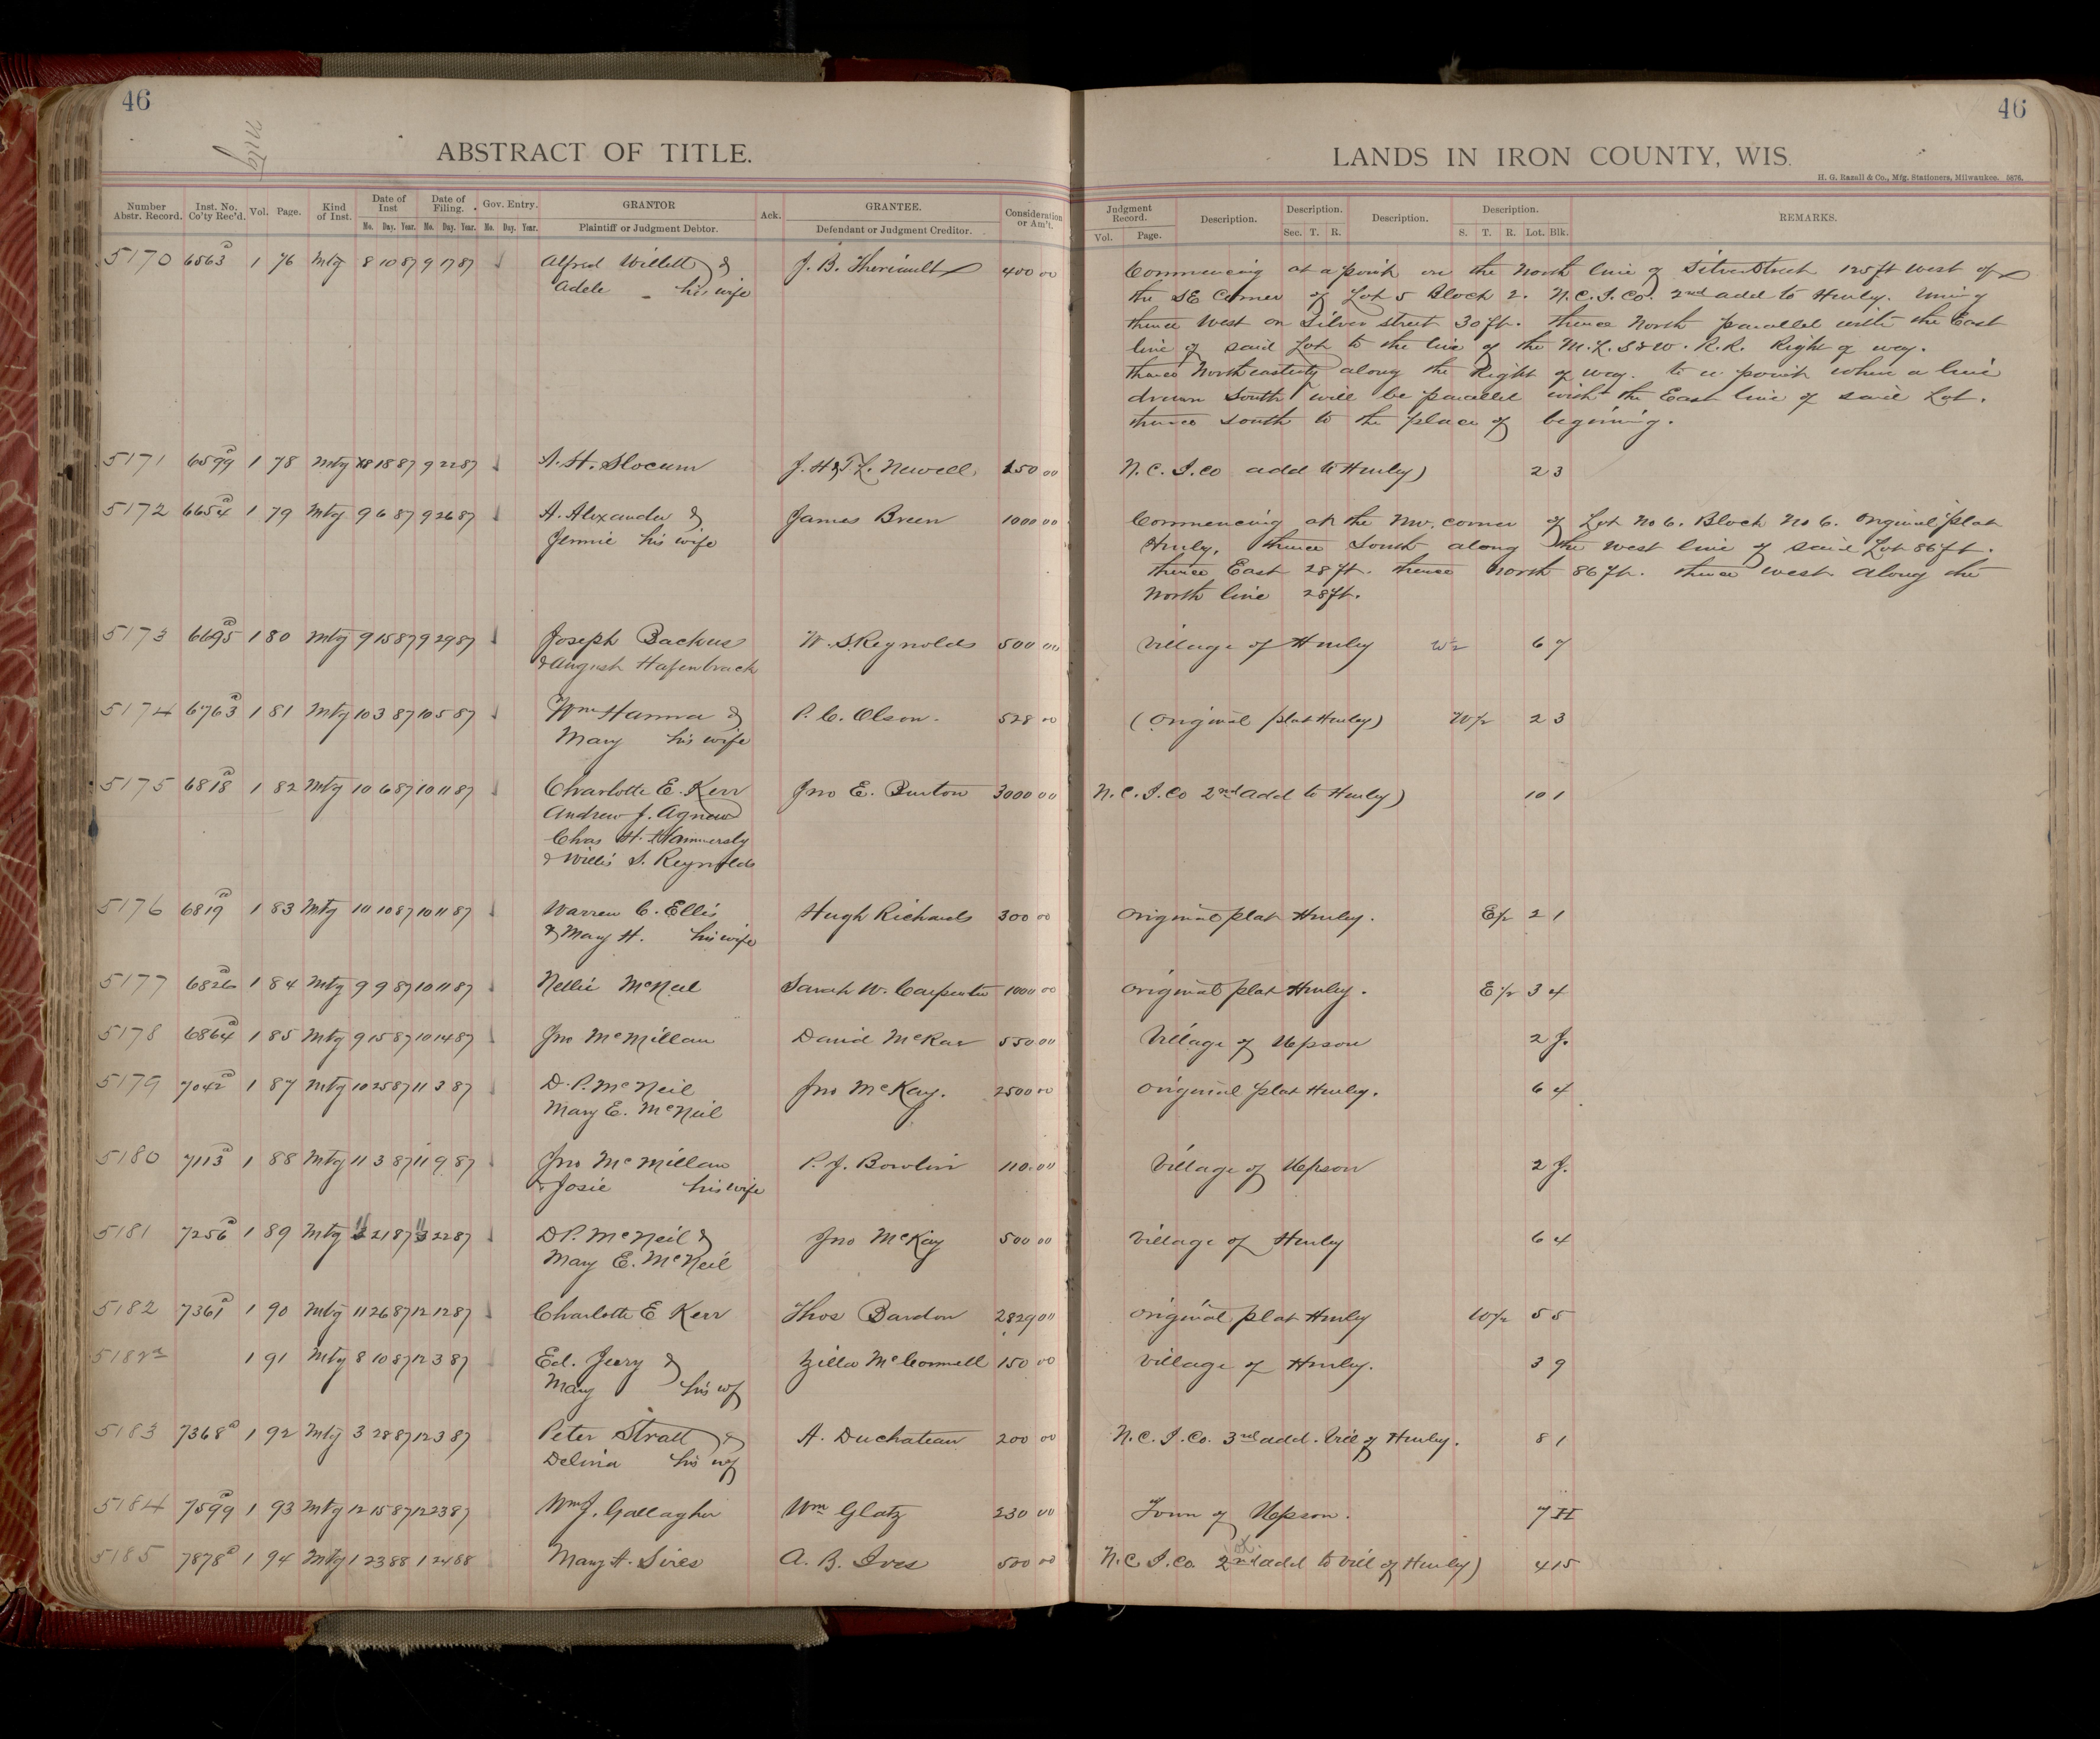 46
Mtg
ABSTRACT OF TITLE.
Number Abstr. Record. Inst. No. Co'ty Rec'd. Vol. Page. Kind of Inst. Date of Inst Mo. Day. Year. Date of Filing. Mo. Day. Year. Gov. Entry. Mo. Day. Year. GRANTOR Plaintiff or Judgment Debtor. Ack. GRANTEE. Defendant or Judgment Creditor. Consideration or Am't.
46
LANDS IN IRON COUNTY, WIS.
H. G. Razall & Co., Mfg. Stationers, Milwaukee. 5876.
Judgment Record. Vol. Page. Description. Description. Sec. T. R. Description. Description. S. T. R. Lot. Blk. REMARKS.
5170 6563 1 76 Mtg 8 10 87 9 17 87 Alfred Willett & J. B. Theriault 400 00 Commencing at a point on the North line of Silver Street 125 ft West of
Adele his wife the SE Corner of Lot 5 Block 2. N.C.I.Co. 2nd add to Hurley.
thence West on Silver street 30 ft. thence North parallel with the East
line of said Lot to the line of the M.L.S&W. R.R. Right of way.
thence Northeasterly along the Right of way. to a point where a line
drawn South will be parallel with the East line of said Lot.
thence South to the place of begining.
5171 6599 1 78 Mtg 8 18 87 9 22 87 A. H. Slocum J. H & T L. Newell 150 00 N.C.I.Co add to Hurley) 2 3
5172 6654 1 79 Mtg 9 6 87 9 26 87 A. Alexander & James Breen 1000 00 Commencing at the NW. corner of Lot No 6. Block No 6. Original plat
Jennie his wife Hurley, thence South along the West line of said Lot 86 ft.
thence East 28 ft. thence North 86 ft. thence West along the
North line 28 ft.
5173 6695 1 80 Mtg 9 15 87 9 29 87 Joseph Backus W. S. Reynolds 500 00 Village of Hurley W½ 6 7
& August Hafenbrack
5174 6763 1 81 Mtg 10 3 87 10 5 87 Wm Hanna & P. C. Olson. 528 00 (Original plat Hurley) W½ 2 3
Mary his wife
5175 6818 1 82 Mtg 10 6 87 10 11 87 Charlotte E. Kerr Jno E. Burton 3000 00 N.C.I.Co 2nd add to Hurley) 10 1
Andrew J. Agnew
Chas H. Hammersly
& Willis S. Reynolds
5176 6819 1 83 Mtg 10 10 87 10 11 87 Warren C. Ellis Hugh Richards 300 00 Original plat Hurley. E½ 2 1
& Mary H. his wife
5177 6826 1 84 Mtg 9 9 87 10 11 87 Nellie McNeil Sarah W. Carpenter 1000 00 Original plat Hurley. E½ 3 4
5178 6864 1 85 Mtg 9 15 87 10 14 87 Jno McMillan David McRae 550 00 Village of Upson 2 J.
5179 7042 1 87 Mtg 10 25 87 11 3 87 D. P. McNeil Jno McKay. 2500 00 Original plat Hurley. 6 4
Mary E. McNeil
5180 7113 1 88 Mtg 11 3 87 11 9 87 Jno McMillan P. J. Bowlin 110.00 Village of Upson 2 J.
& Josie his wife
5181 7256 1 89 Mtg 11 21 87 11 22 87 D P. McNeil & Jno McKay 500 00 Village of Hurley 6 4
Mary E. McNeil
5182 7361 1 90 Mtg 11 26 87 12 12 87 Charlotte E Kerr Thos Bardon 2829 00 Original plat Hurley W½ 5 5
5182½ 1 91 Mtg 8 10 87 12 3 87 Ed. Jeary & Zilla McConnell 150 00 Village of Hurley. 3 9
Mary his wf
5183 7368 1 92 Mtg 3 28 87 12 3 87 Peter Stratt & A. Duchateau 200 00 N.C.I.Co. 3rd add. Vill of Hurley. 8 1
Delina his wf
5184 7599 1 93 Mtg 12 15 87 12 23 87 Wm J. Gallagher Wm Glatz 230 00 Town of Upson. 7 H
5185 7878 1 94 Mtg 1 23 88 1 24 88 Mary A. Sires A. B. Ives 500 00 N.C.I.Co. 2nd add to Vill of Hurley) 4 15